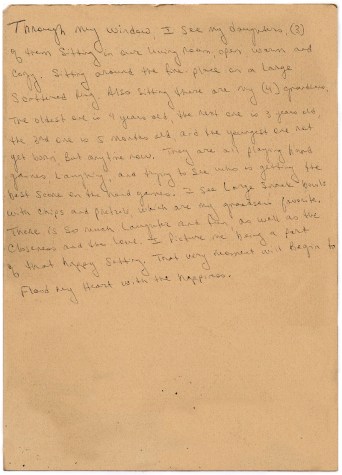 Through my window, I see my daughters, (3)
of them sitting in our living room, open, warm and
cozy. Sitting around the fire place on a large
scattered rug. Also sitting there are my (4) grandsons,
The oldest one is 4 years old, the next one is 3 years old,
the 3rd one is 5 months old and the youngest one not
yet born, but anytime now. They are all playing board
games laughing, and trying to see who is getting the
best score on the board games. I see large snack bowls
with chips and pretzels, which are my grandsons favorite.
There is so much laughter and fun, as well as the
closeness and the love. I picture me being a part
of that happy setting. That very moment will begin to
flood my heart with the happiness.